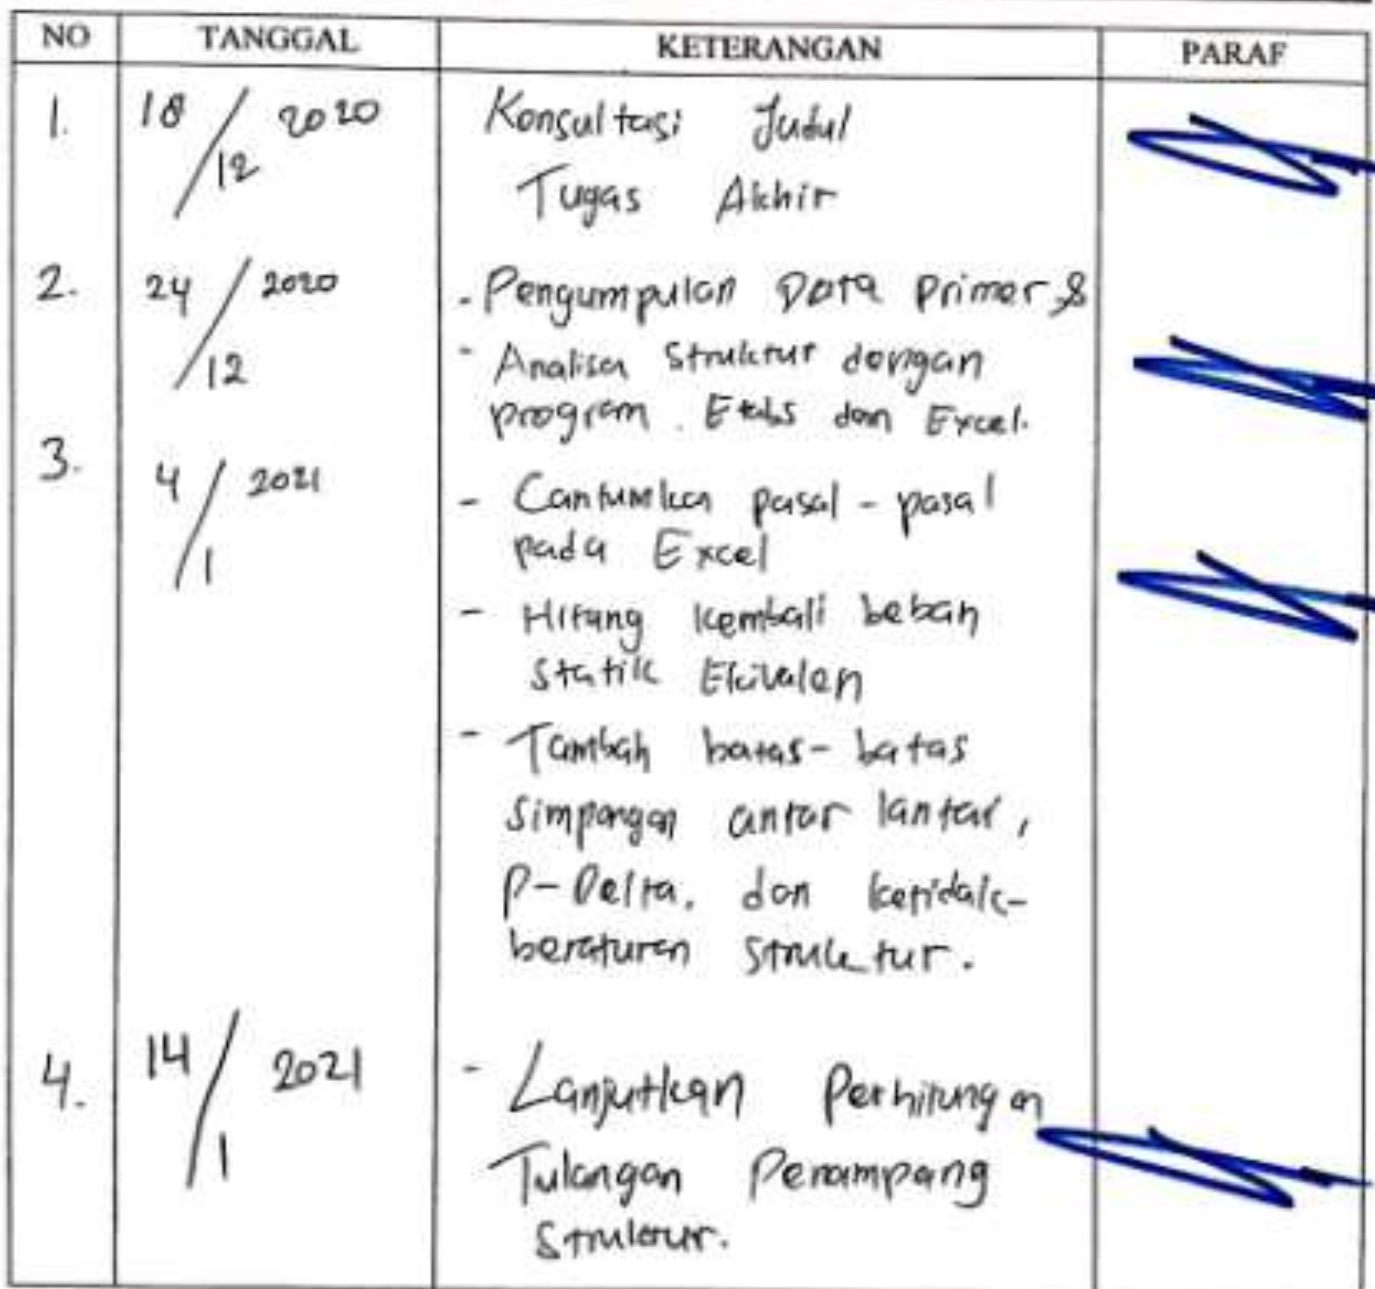 NO TANGGAL KETERANGAN PARAF
1. 18/12 2020 Konsultasi Judul
Tugas Akhir
2. 24/12 2020 - Pengumpulan Data primer &
- Analisa Struktur dengan
program. Etabs dan Excel.
3. 4/1 2021 - Cantumkan pasal-pasal
pada Excel
- Hitung kembali beban
Statik Ekivalen
- Tambah batas-batas
Simpangan antar lantai,
P-Delta, dan ketidak-
beraturan Struktur.
4. 14/1 2021 - Lanjutkan Perhitungan
Tulangan Penampang
Struktur.